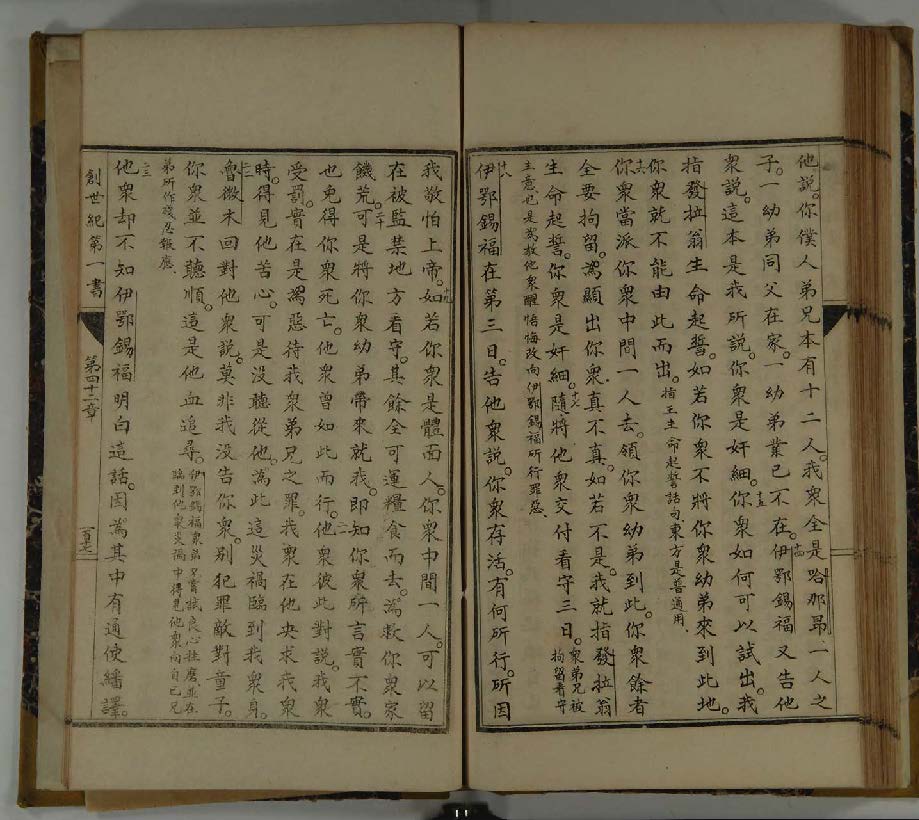 他說。你僕人弟兄本有十二人。我眾全是哈那昻一人之
子。一幼弟同父在家。一幼弟業已不在。十四伊鄂錫福又告他
眾說。這本是我所說。你眾是奸細。十五你眾如何可以試出。我
指發拉翁生命起誓。如若你眾不將你眾幼弟來到此地
你眾就不能由此而出。指王生命起誓話句。東方是普通用
十六你眾當派你眾中間一人去。領你眾幼弟到此。你眾餘者
全要拘留。為顯出你眾真不真。如若不是。我就指發拉翁
生命起誓。你眾是奸細。十七隨將他眾交付看守三日。眾弟兄被拘留看守
主意。也是為教他眾醒悟悔改向伊鄂錫福所行罪惡
十八伊鄂錫福在第三日。告他眾說。你眾存活。有何所行。所因
我敬怕上帝。十九如若你眾是體面人。你眾中間一人。可以留
在被監禁地方看守。其餘全可運糧食而去。為救你眾家
饑荒。二十可是將你眾幼弟帶來就我。即知你眾所言實不實。
也免得你眾死亡。他眾曾如此而行。二一他眾彼此對說。我眾
受罰。實在是為惡待我眾弟兄之罪。我眾在他央求我眾
時。得見他苦心。可是沒聽從他。為此這災禍臨到我眾身。
二二魯微木回對他眾說。莫非我沒告你眾。別犯罪敵對童子。
你眾並不聽順。這是他血追尋。伊鄂錫福眾弟兄嘗試良心挫磨。並在臨到他眾災禍中得見他眾向自已兄
弟所作殘忍報應
二三他眾却不知伊鄂錫福明白這話。因為其中有通使繙譯。
創世紀第一書
第四十二章
百七